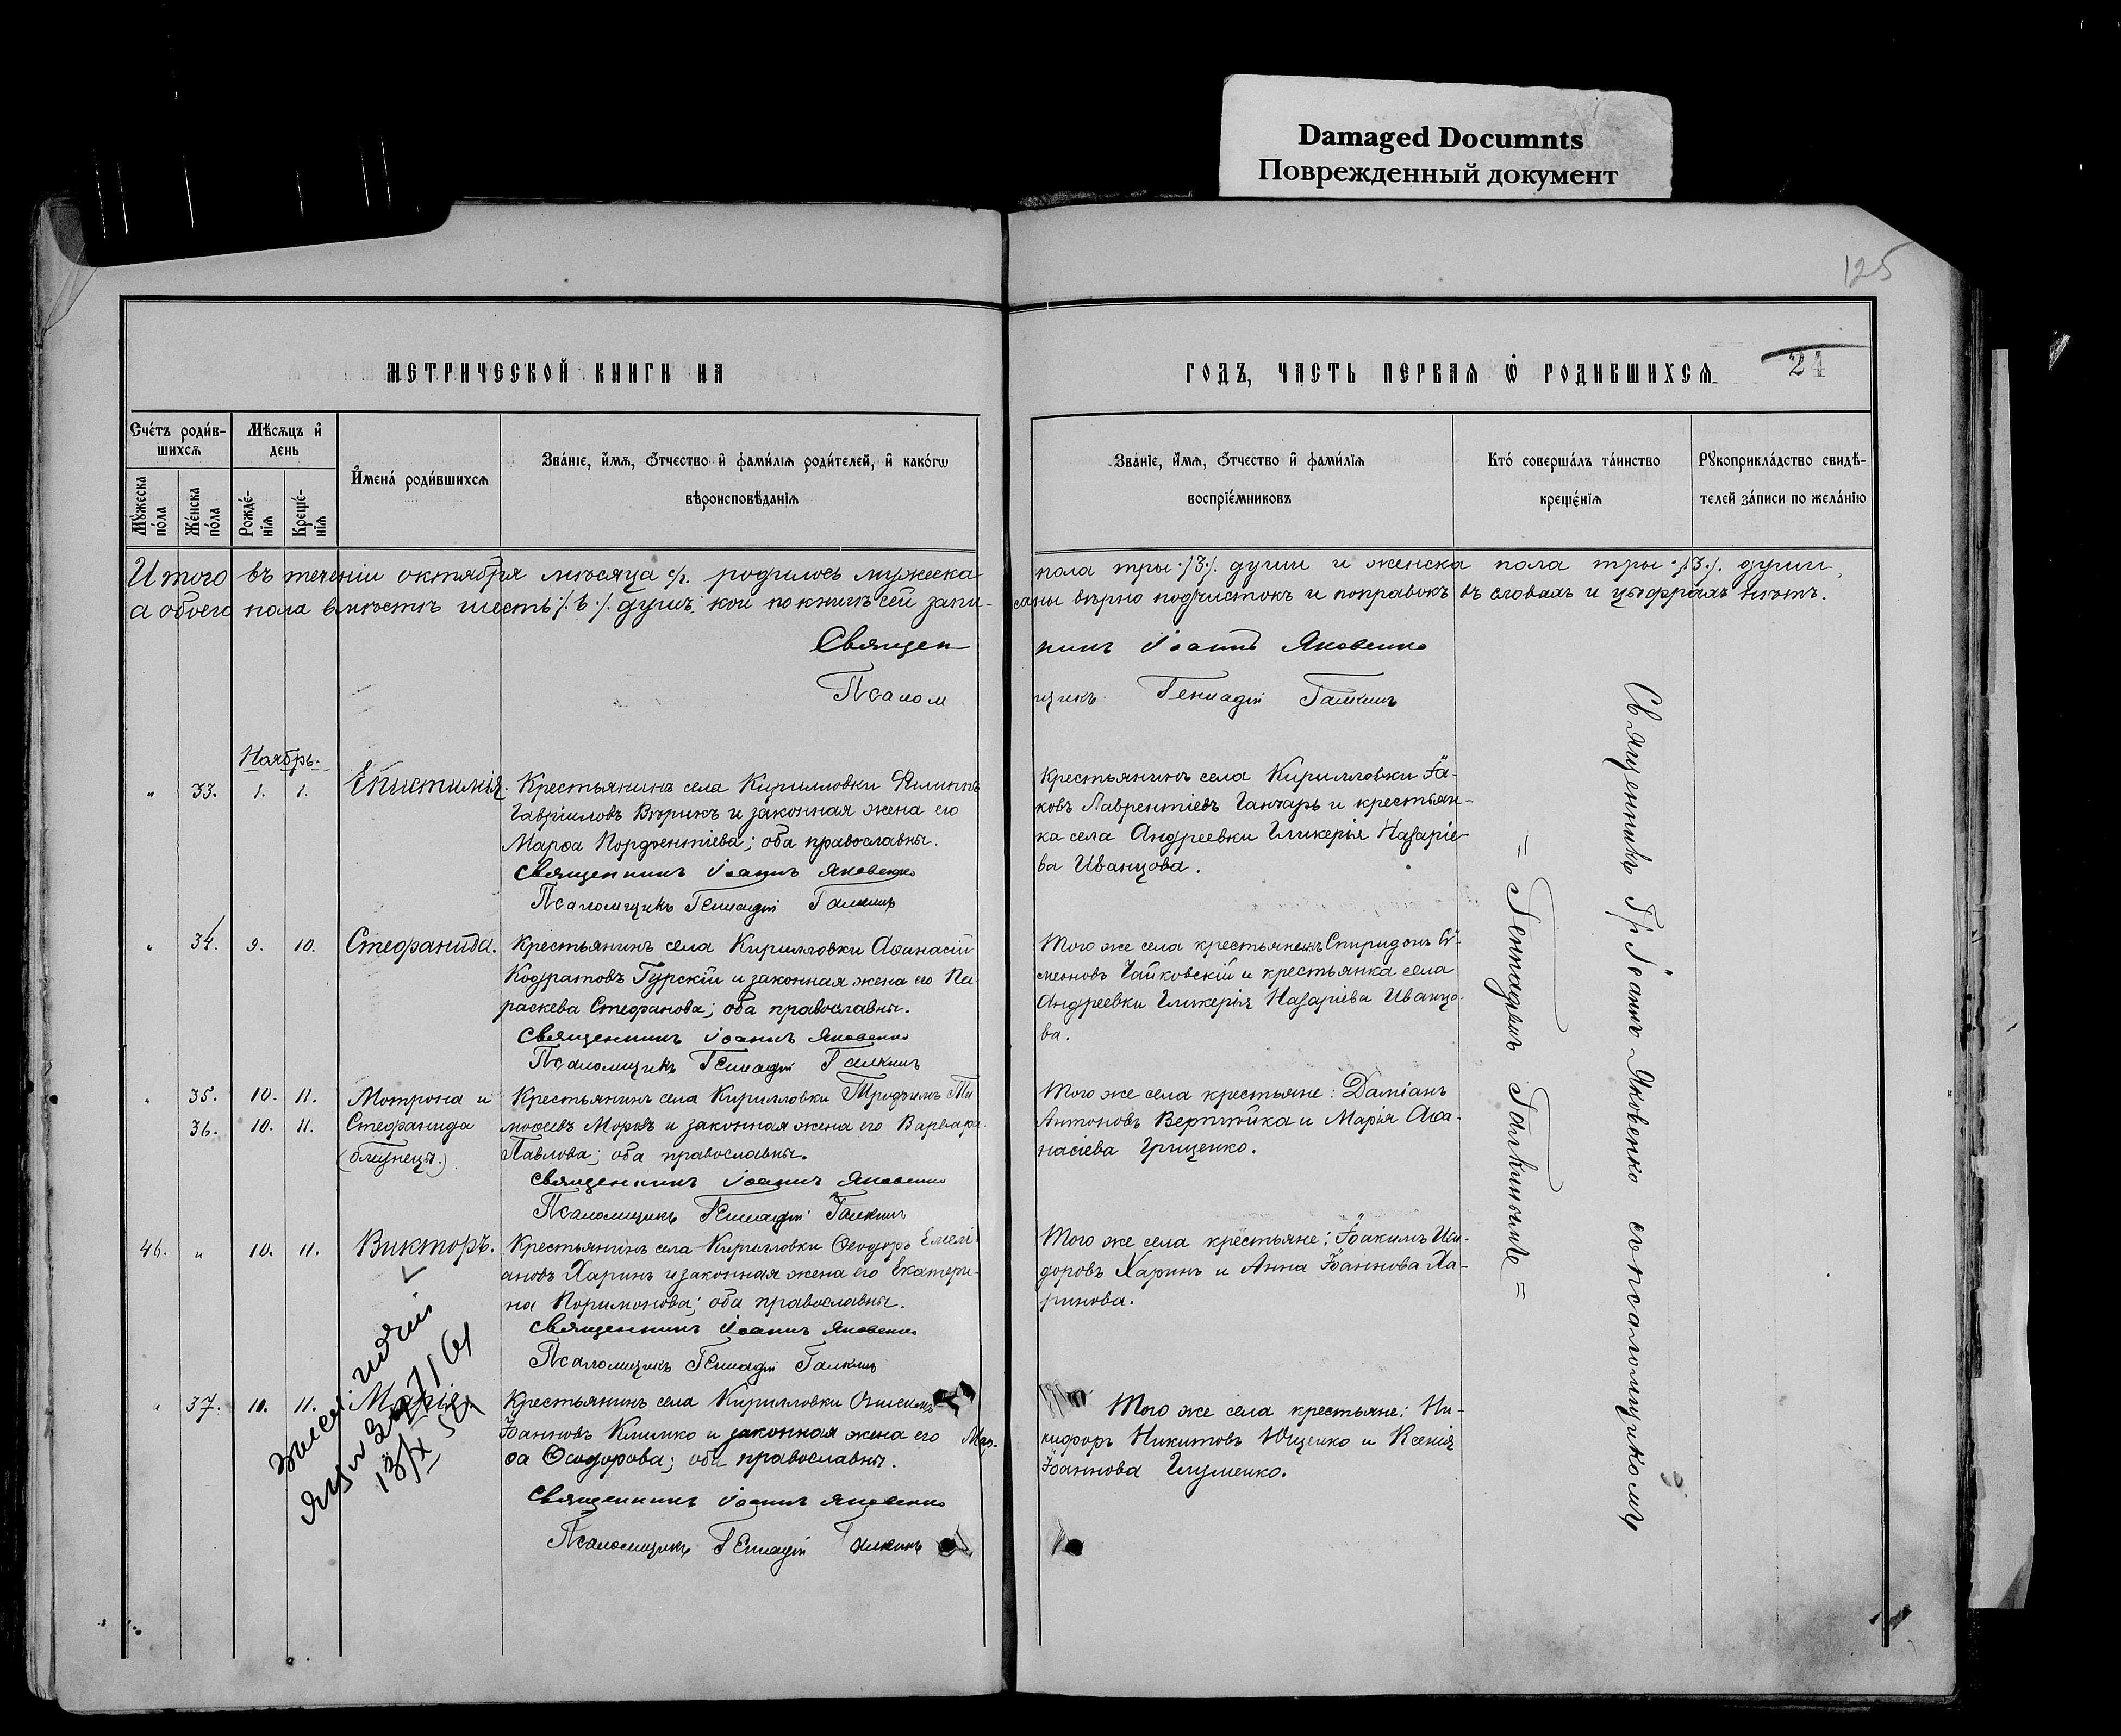 Damaged Documnts
Поврежденный документ
125
МЕТРИЧЕСКОЙ КНИГИ НА
ГОДЪ, ЧАСТЬ ПЕРВАЯ Ѡ РОДИВШИХСЯ
21
Счетъ родив-
шихсѧ
Мѣсѧцъ и
день
Мꙋжеска
пола
Женска
пола
Рожде-
нїѧ
Креще-
нїѧ
Имена родившихсѧ
Званїе, имѧ, ѿчество и фамилїѧ родителей, и какогѡ
вѣроисповѣданїѧ
Званїе, имѧ, ѿчество и фамилїѧ
воспрїемниковъ
Кто совершалъ таинство
крещенїѧ
Рꙋкоприкладство свидѣ-
телей записи по желанїю
Итого въ теченіи октября мѣсяца с/г. родилось мужеска
пола три ./3./. души и женска пола три ./3./. души,
а обоего пола вмѣстѣ шесть ./.6./. душъ, кои по книгѣ сей запи-
саны вѣрно подчистокъ и поправокъ въ словахъ и цыфрахъ нѣтъ.
Священ
никъ Іоаннъ Яковенко
Псалом
щикъ Геннадій Галкинъ
Ноябрь.
" 33. 1. 1. Епистимія. Крестьянинъ села Кирилловки Филиппъ
Гавріиловъ Вѣрикъ и законная жена его
Марѳа Порфентіева; оба православны.
Священникъ Іоаннъ Яковенко
Псаломщикъ Геннадій Галкинъ
Крестьянинъ села Кирилловки Іа-
ковъ Лаврентіевъ Ганчарь и крестьян-
ка села Андреевки Гликерія Назаріе-
ва Иванцова.
" 34. 9. 10. Стефанида. Крестьянинъ села Кирилловки Аѳанасій
Кодратовъ Гурскій и законная жена его Па-
раскева Стефанова; оба православны.
Священникъ Іоаннъ Яковенко
Псаломщикъ Геннадій Галкинъ
Того же села крестьянинъ Спиридонъ Си-
меоновъ Чайковскій и крестьянка села
Андреевки Гликерія Назаріева Иванцо-
ва.
" 35. 10. 11. Мотрона и Крестьянинъ села Кирилловки Трофимъ Ти
36. 10. 11. Стефанида моѳеевъ Моровъ и законная жена его Варвара
(близнецы.) Павлова; оба православны.
Священникъ Іоаннъ Яковенко
Псаломщикъ Геннадій Галкинъ
Того же села крестьяне: Даміанъ
Антоновъ и Марія Аѳа-
насіева Грищенко.
46. " 10. 11. Викторъ. Крестьянинъ села Кирилловки Ѳеодоръ Емелі-
ановъ Харинъ и законная жена его Екатери-
на Поримонова; оба православны.
Священникъ Іоаннъ Яковенко
Псаломщикъ Геннадій Галкинъ
Того же села крестьяне: Іоакимъ Иси-
доровъ Харинъ и Анна Іоаннова Ха-
ринова.
" 37. 10. 11. Марія. Крестьянинъ села Кирилловки Онисимъ
Іоанновъ Климко и законная жена его Мар-
ѳа Ѳеодорова; оба православны.
Священникъ Іоаннъ Яковенко
Псаломщикъ Геннадій Галкинъ
Того же села крестьяне: Ни-
кифоръ Никитовъ Ющенко и Ксенія
Іоаннова Глуменко.
Священникъ Іоаннъ Яковенко съ псаломщикомъ
= Геннадіемъ Галкинымъ =